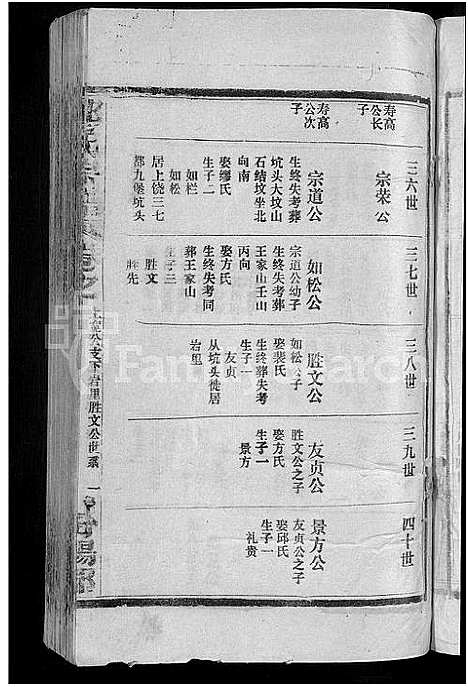 三六世
寿高公长子
宗荣公
寿高公次子
宗道公
生终失考葬
坑头大坟山
石结坟坐北
向南
娶缪氏
生子二
如栏
如松
居上饶三七
都九堡坑头
三七世
如松公
宗道公幼子
生终失考葬
王家山壬山
丙向
娶方氏
生终失考同
葬王家山
生子二
胜文
胜先
三八世
胜文公
如松公子
娶裴氏
生终葬失考
生子一
友贞
从坑头徙居
岩里
三九世
友贞公
胜文公之子
娶方氏
生子一
景方
四十世
景方公
友贞公之子
娶邱氏
生子一
礼贵
公支下岩里胜文公世系
一
FamilySearch